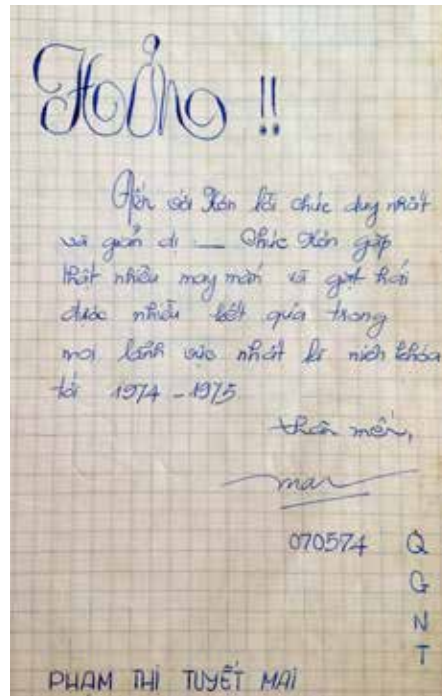 !!
Đến với Hón lời chúc duy nhất
và giản dị — Chúc Hón gặp
thật nhiều may mắn và gặt hái
được nhiều kết qủa trong
mọi lãnh vực nhất là niên khóa
tới 1974 - 1975
thân mến,
mai
070574 Q
G
N
T
PHAM THI TUYẾT MAI